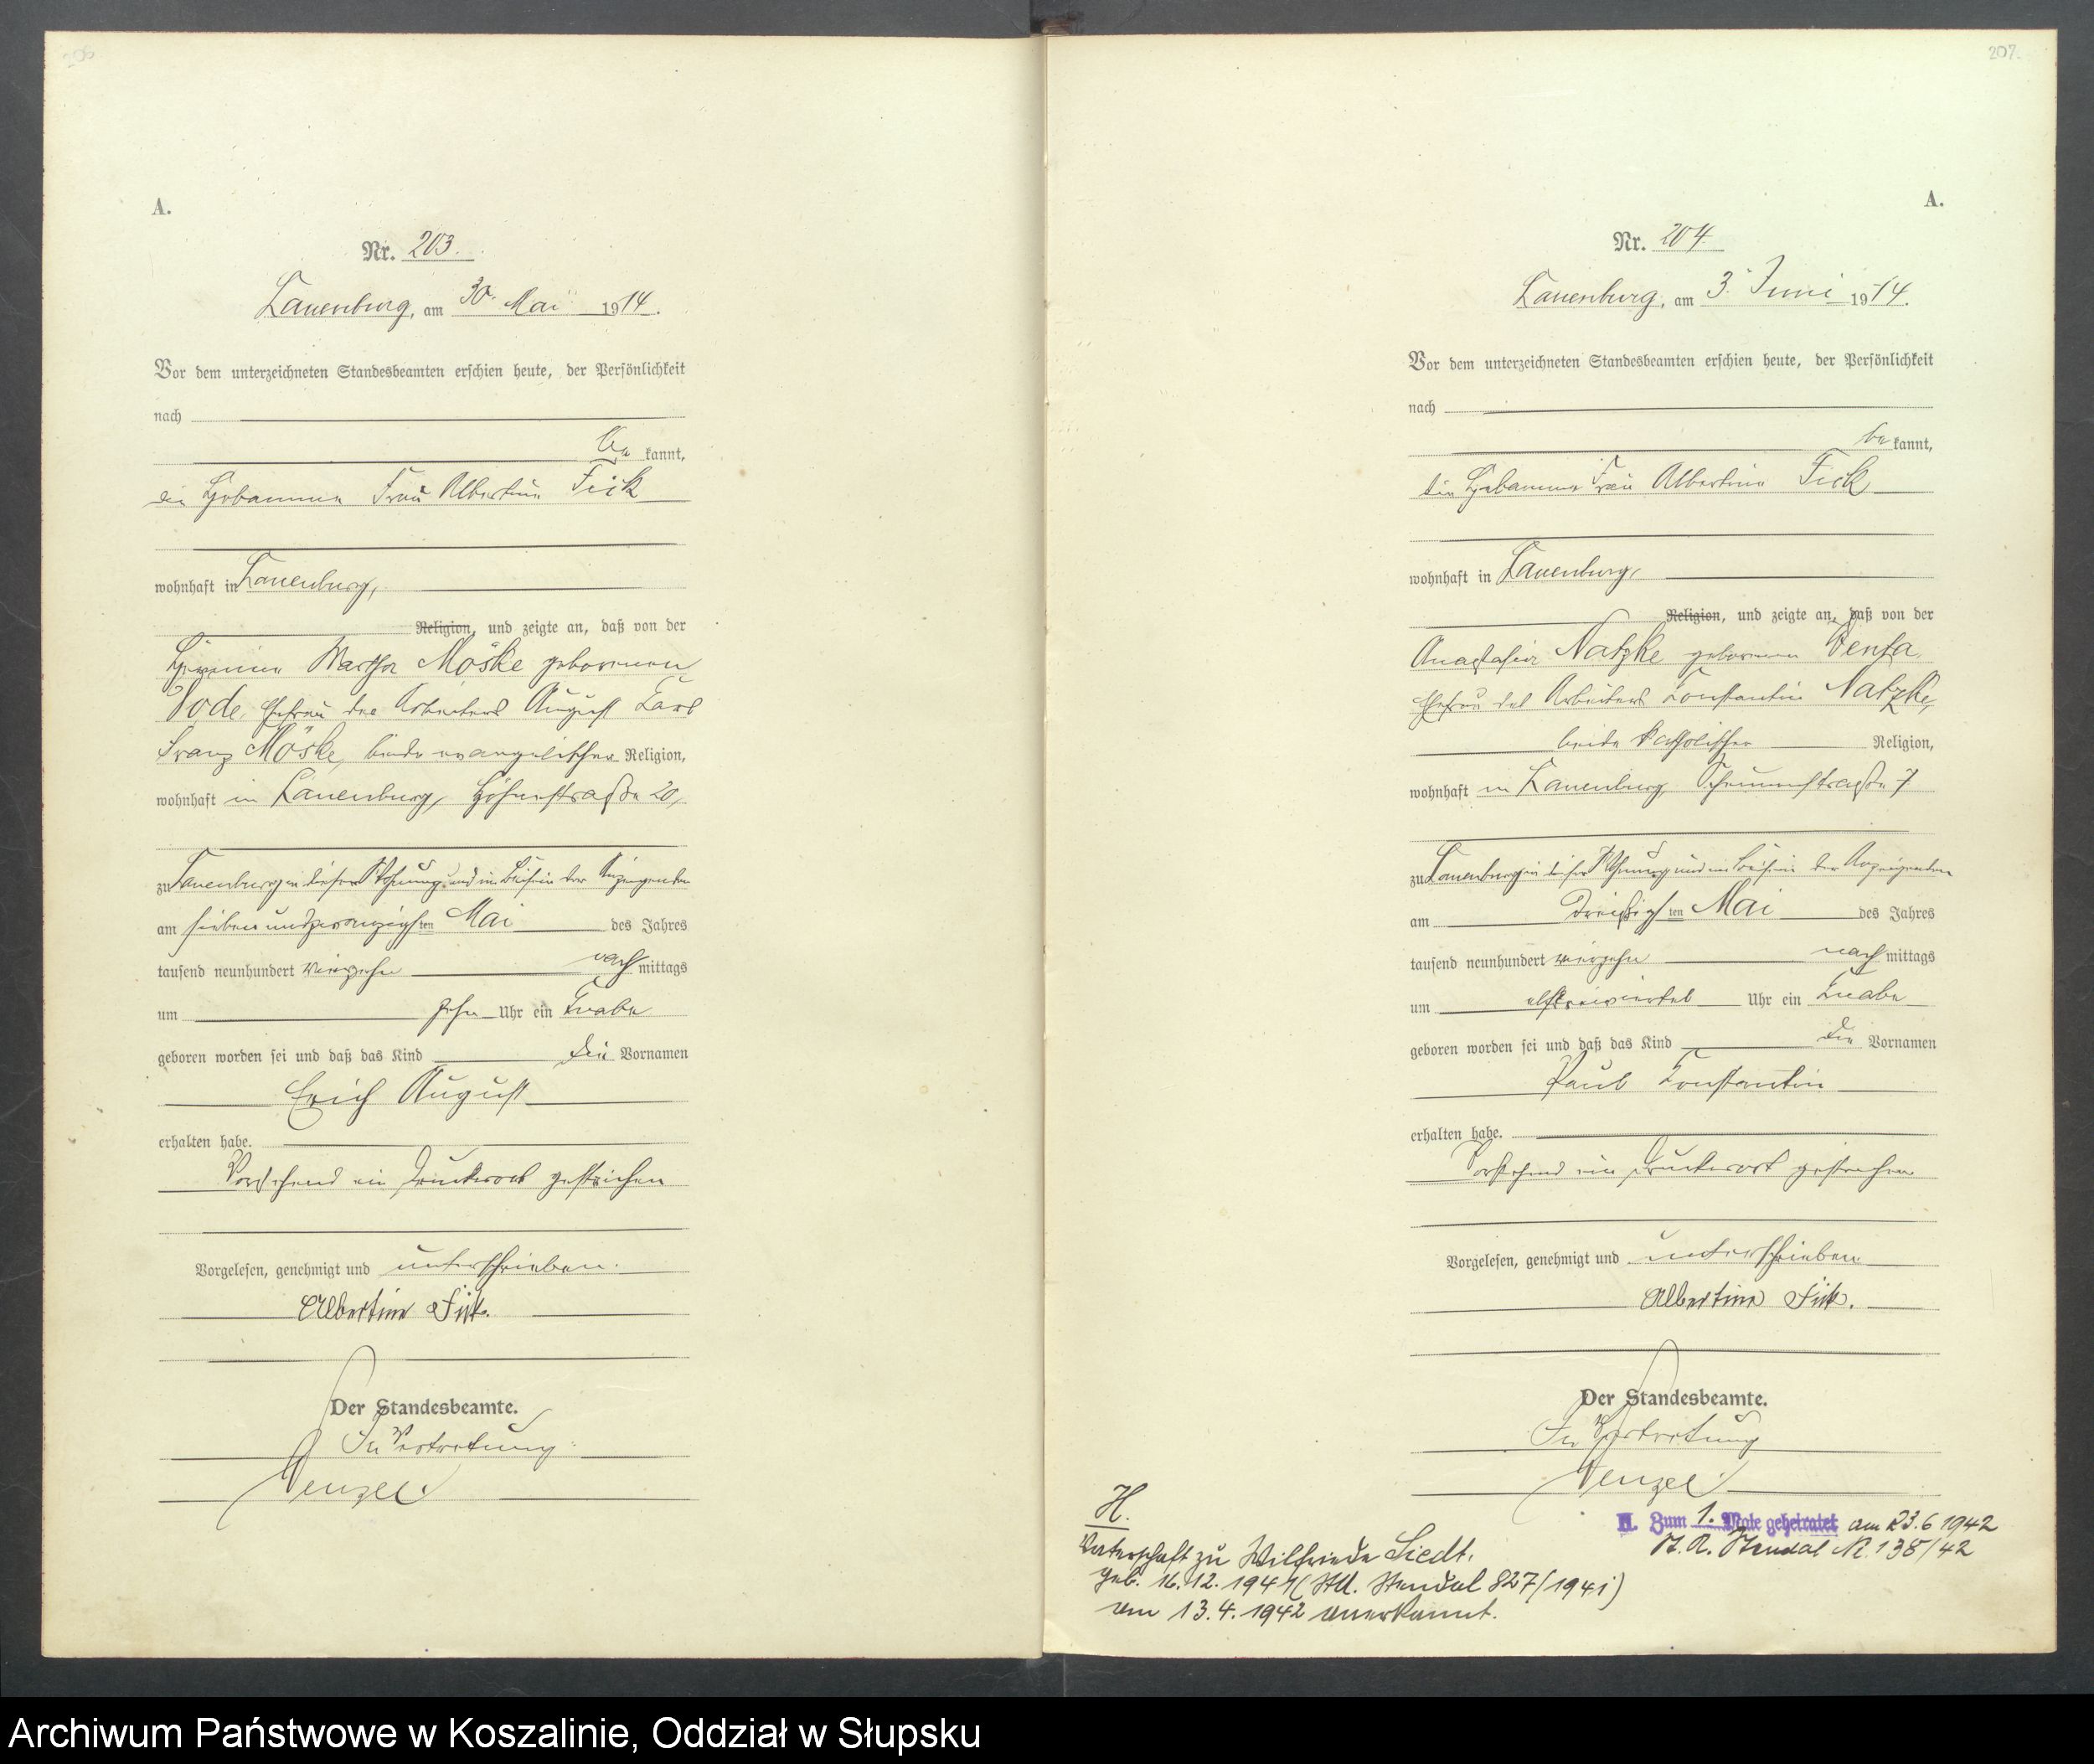 206
A.
Nr. 203.
Lauenburg, am 30. Mai 1914.
Vor dem unterzeichneten Standesbeamten erschien heute, der Persönlichkeit
nach
be kannt,
die Hebamme Frau Albertine Fick
wohnhaft in Lauenburg,
Religion, und zeigte an, daß von der
Martha Möske geborenen
Bode, Ehefrau des Arbeiters August Karl
Franz Möske, beide evangelischer Religion,
wohnhaft in Lauenburg, Höhnestraße 20,
zu Lauenburg in dieser Wohnung und im Beisein der Anzeigenden
am siebenundzwanzigsten Mai des Jahres
tausend neunhundert vierzehn nach mittags
um zehn Uhr ein Knabe
geboren worden sei und daß das Kind die Vornamen
Erich August
erhalten habe.
Vorstehend ein Druckwort gestrichen
Vorgelesen, genehmigt und unterschrieben.
Albertine Fick.
Der Standesbeamte.
In Vertretung:
Wenzel.
207.
A.
Nr. 204
Lauenburg, am 3. Juni 1914.
Vor dem unterzeichneten Standesbeamten erschien heute, der Persönlichkeit
nach
be kannt,
die Hebamme Frau Albertine Fick
wohnhaft in Lauenburg,
Religion, und zeigte an, daß von der
Anastasia Natzke geborenen Benfa,
Ehefrau des Arbeiters Konstantin Natzke,
beide katholischer Religion,
wohnhaft in Lauenburg, Scheunenstraße 7
zu Lauenburg in dieser Wohnung und im Beisein der Anzeigenden
am dreißigsten Mai des Jahres
tausend neunhundert vierzehn nach mittags
um elfdreiviertel Uhr ein Knabe
geboren worden sei und daß das Kind die Vornamen
Paul Konstantin
erhalten habe.
Vorstehend ein Druckwort gestrichen
Vorgelesen, genehmigt und unterschrieben
Albertine Fick.
Der Standesbeamte.
In Vertretung
Wenzel.
H. Zum 1. Male geheiratet am 23.6 1942
St. A. Stendal Nr. 138/42
H.
Vaterschaft zu Wilfriede Liedt.
geb. 16.12.1941 (StA. Stendal 827/1941)
am 13.4.1942 anerkannt.
Archiwum Państwowe w Koszalinie, Oddział w Słupsku